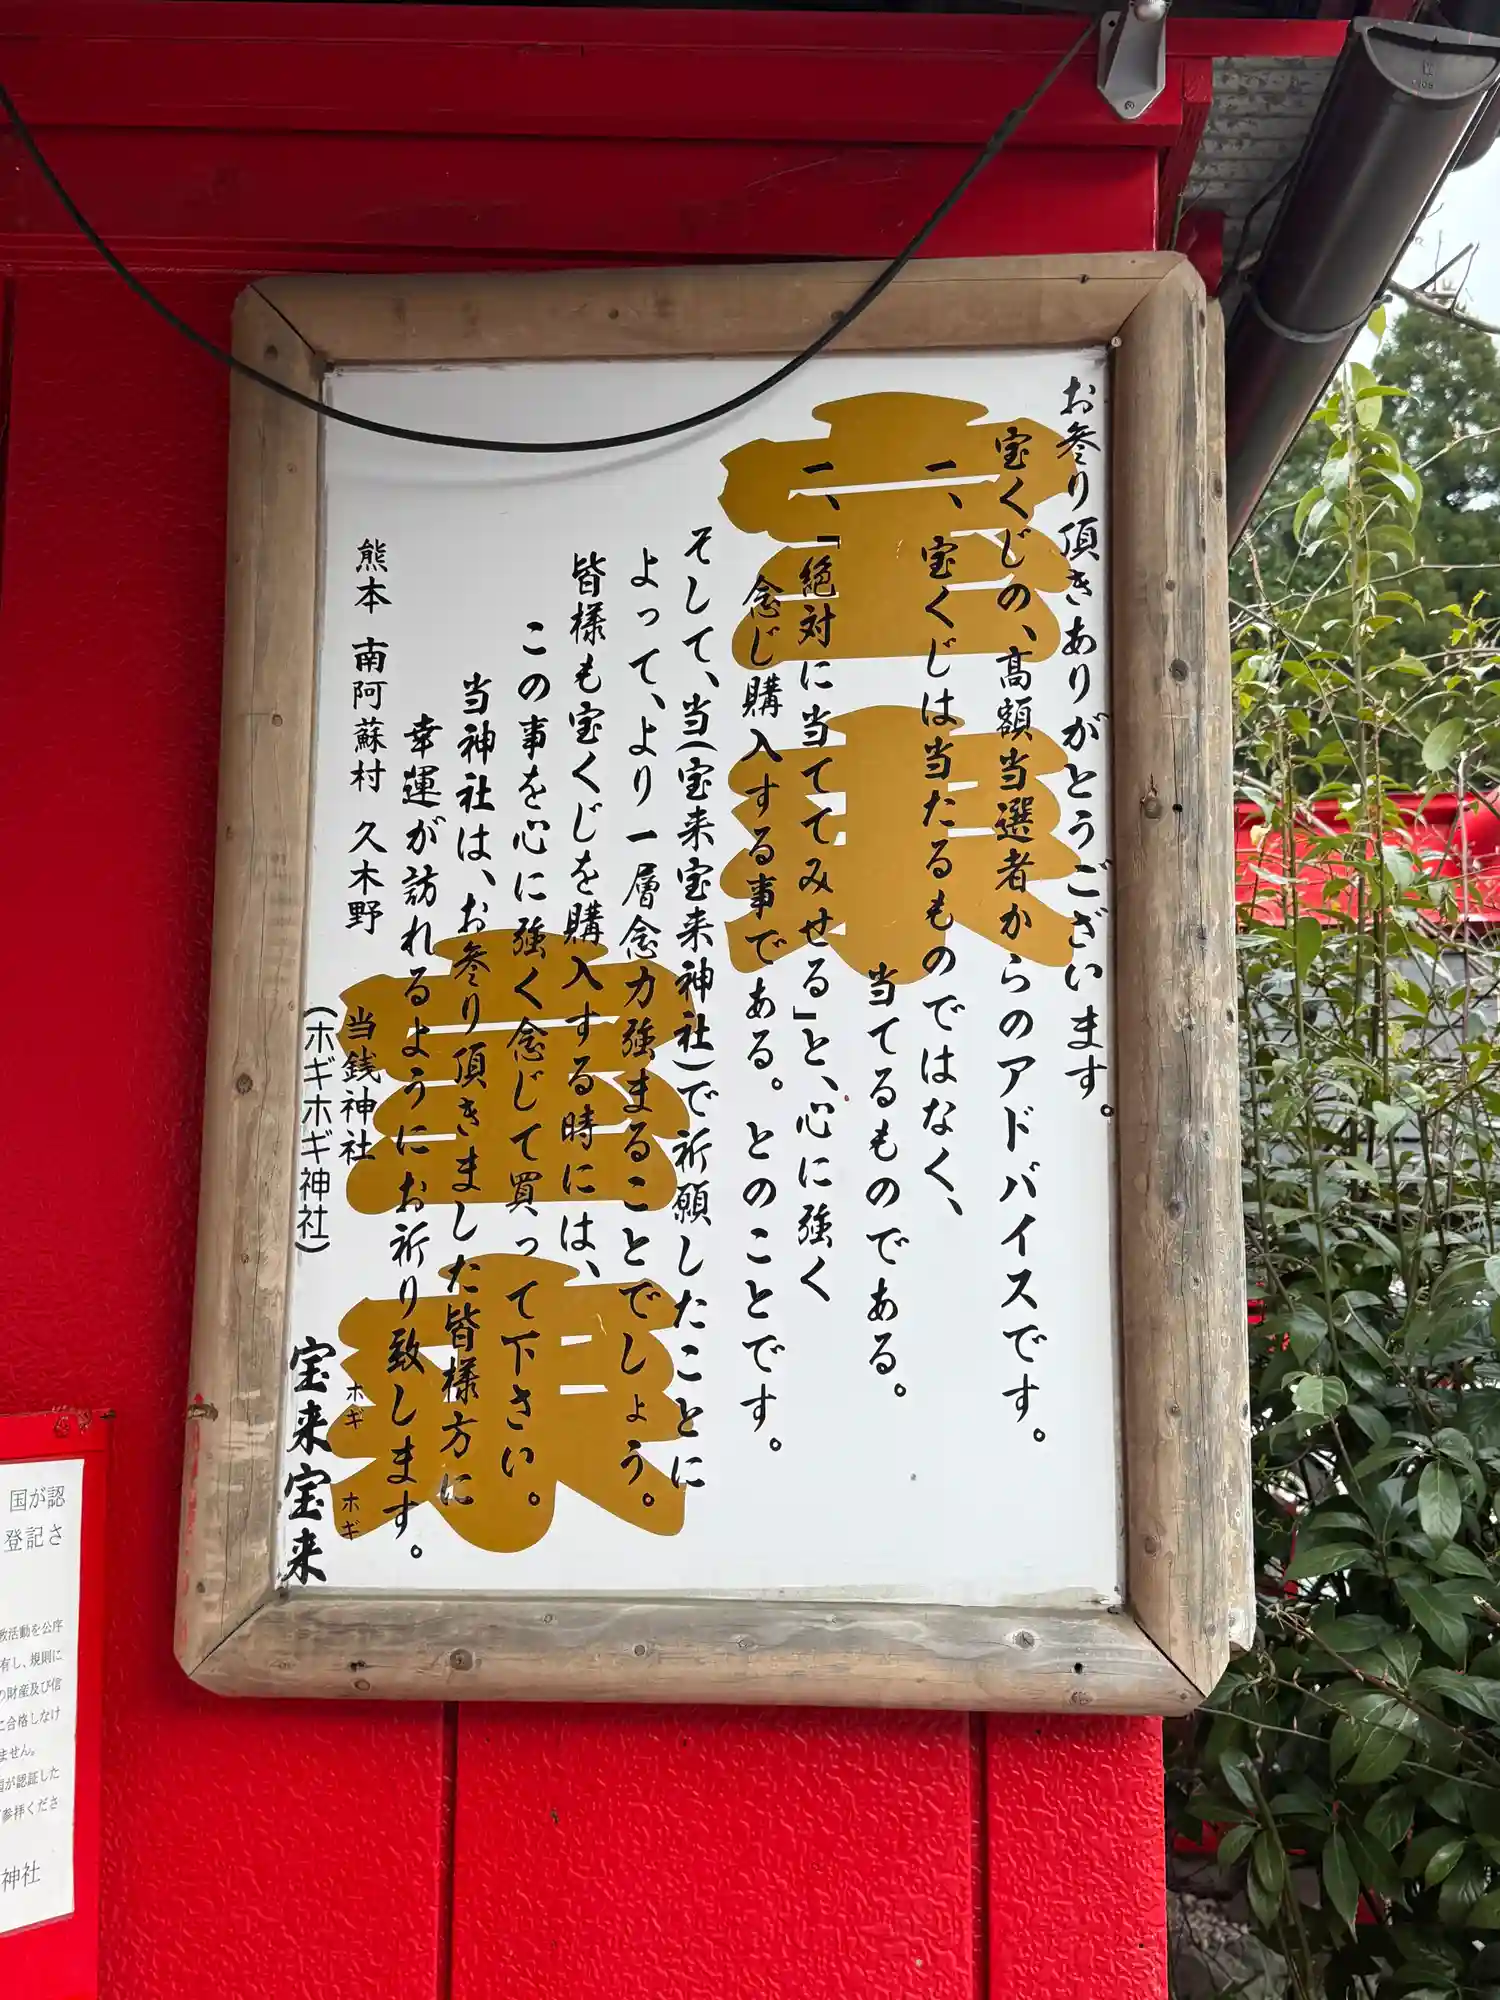 お参り頂きありがとうございます。
宝くじの、高額当選者からのアドバイスです。
一、宝くじは当たるものではなく、
当てるものである。
一、「絶対に当ててみせる」と、心に強く
念じ購入する事である。とのことです。
そして、当(宝来宝来神社)で祈願したことに
よって、より一層念力強まることでしょう。
皆様も宝くじを購入する時には、
この事を心に強く念じて買って下さい。
当神社は、お参り頂きました皆様方に
幸運が訪れるようにお祈り致します。
熊本 南阿蘇村 久木野
当銭神社
(ホギホギ神社)
ホギ ホギ
宝来宝来
宝来
宝来
国が認
登記さ
教活動を公序
有し、規則に
の財産及び信
に合格しなけ
ません。
国が認証した
参拝くださ
神社